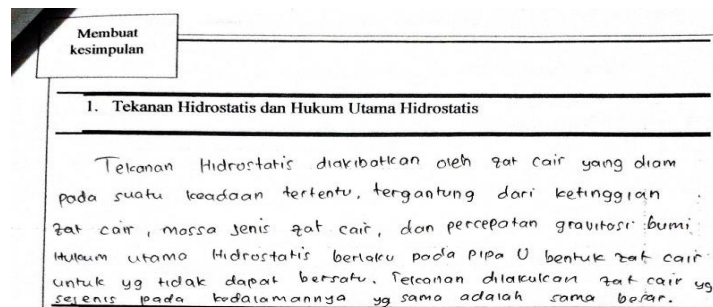 Membuat
kesimpulan
1. Tekanan Hidrostatis dan Hukum Utama Hidrostatis
Tekanan Hidrostatis diakibatkan oleh zat cair yang diam
pada suatu keadaan tertentu, tergantung dari ketinggian
zat cair, massa jenis zat cair, dan percepatan gravitasi bumi.
Hukum utama Hidrostatis berlaku pada pipa U bentuk zat cair
untuk yg tidak dapat bersatu. Tekanan dilakukan zat cair yg
sejenis pada kedalamannya yg sama adalah sama besar.